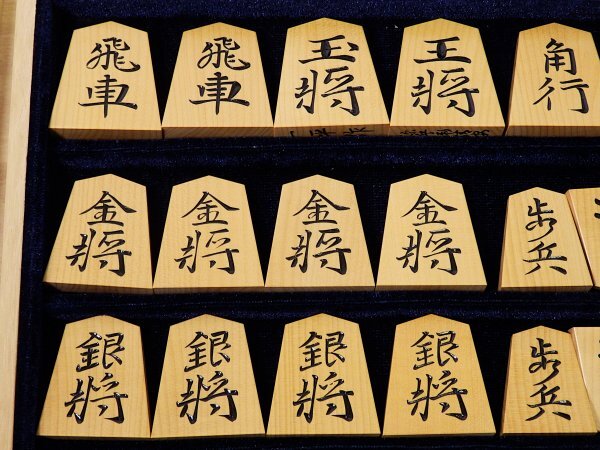 飛車 飛車 玉将 王将 角行
金将 金将 金将 金将 歩兵
銀将 銀将 銀将 銀将 歩兵